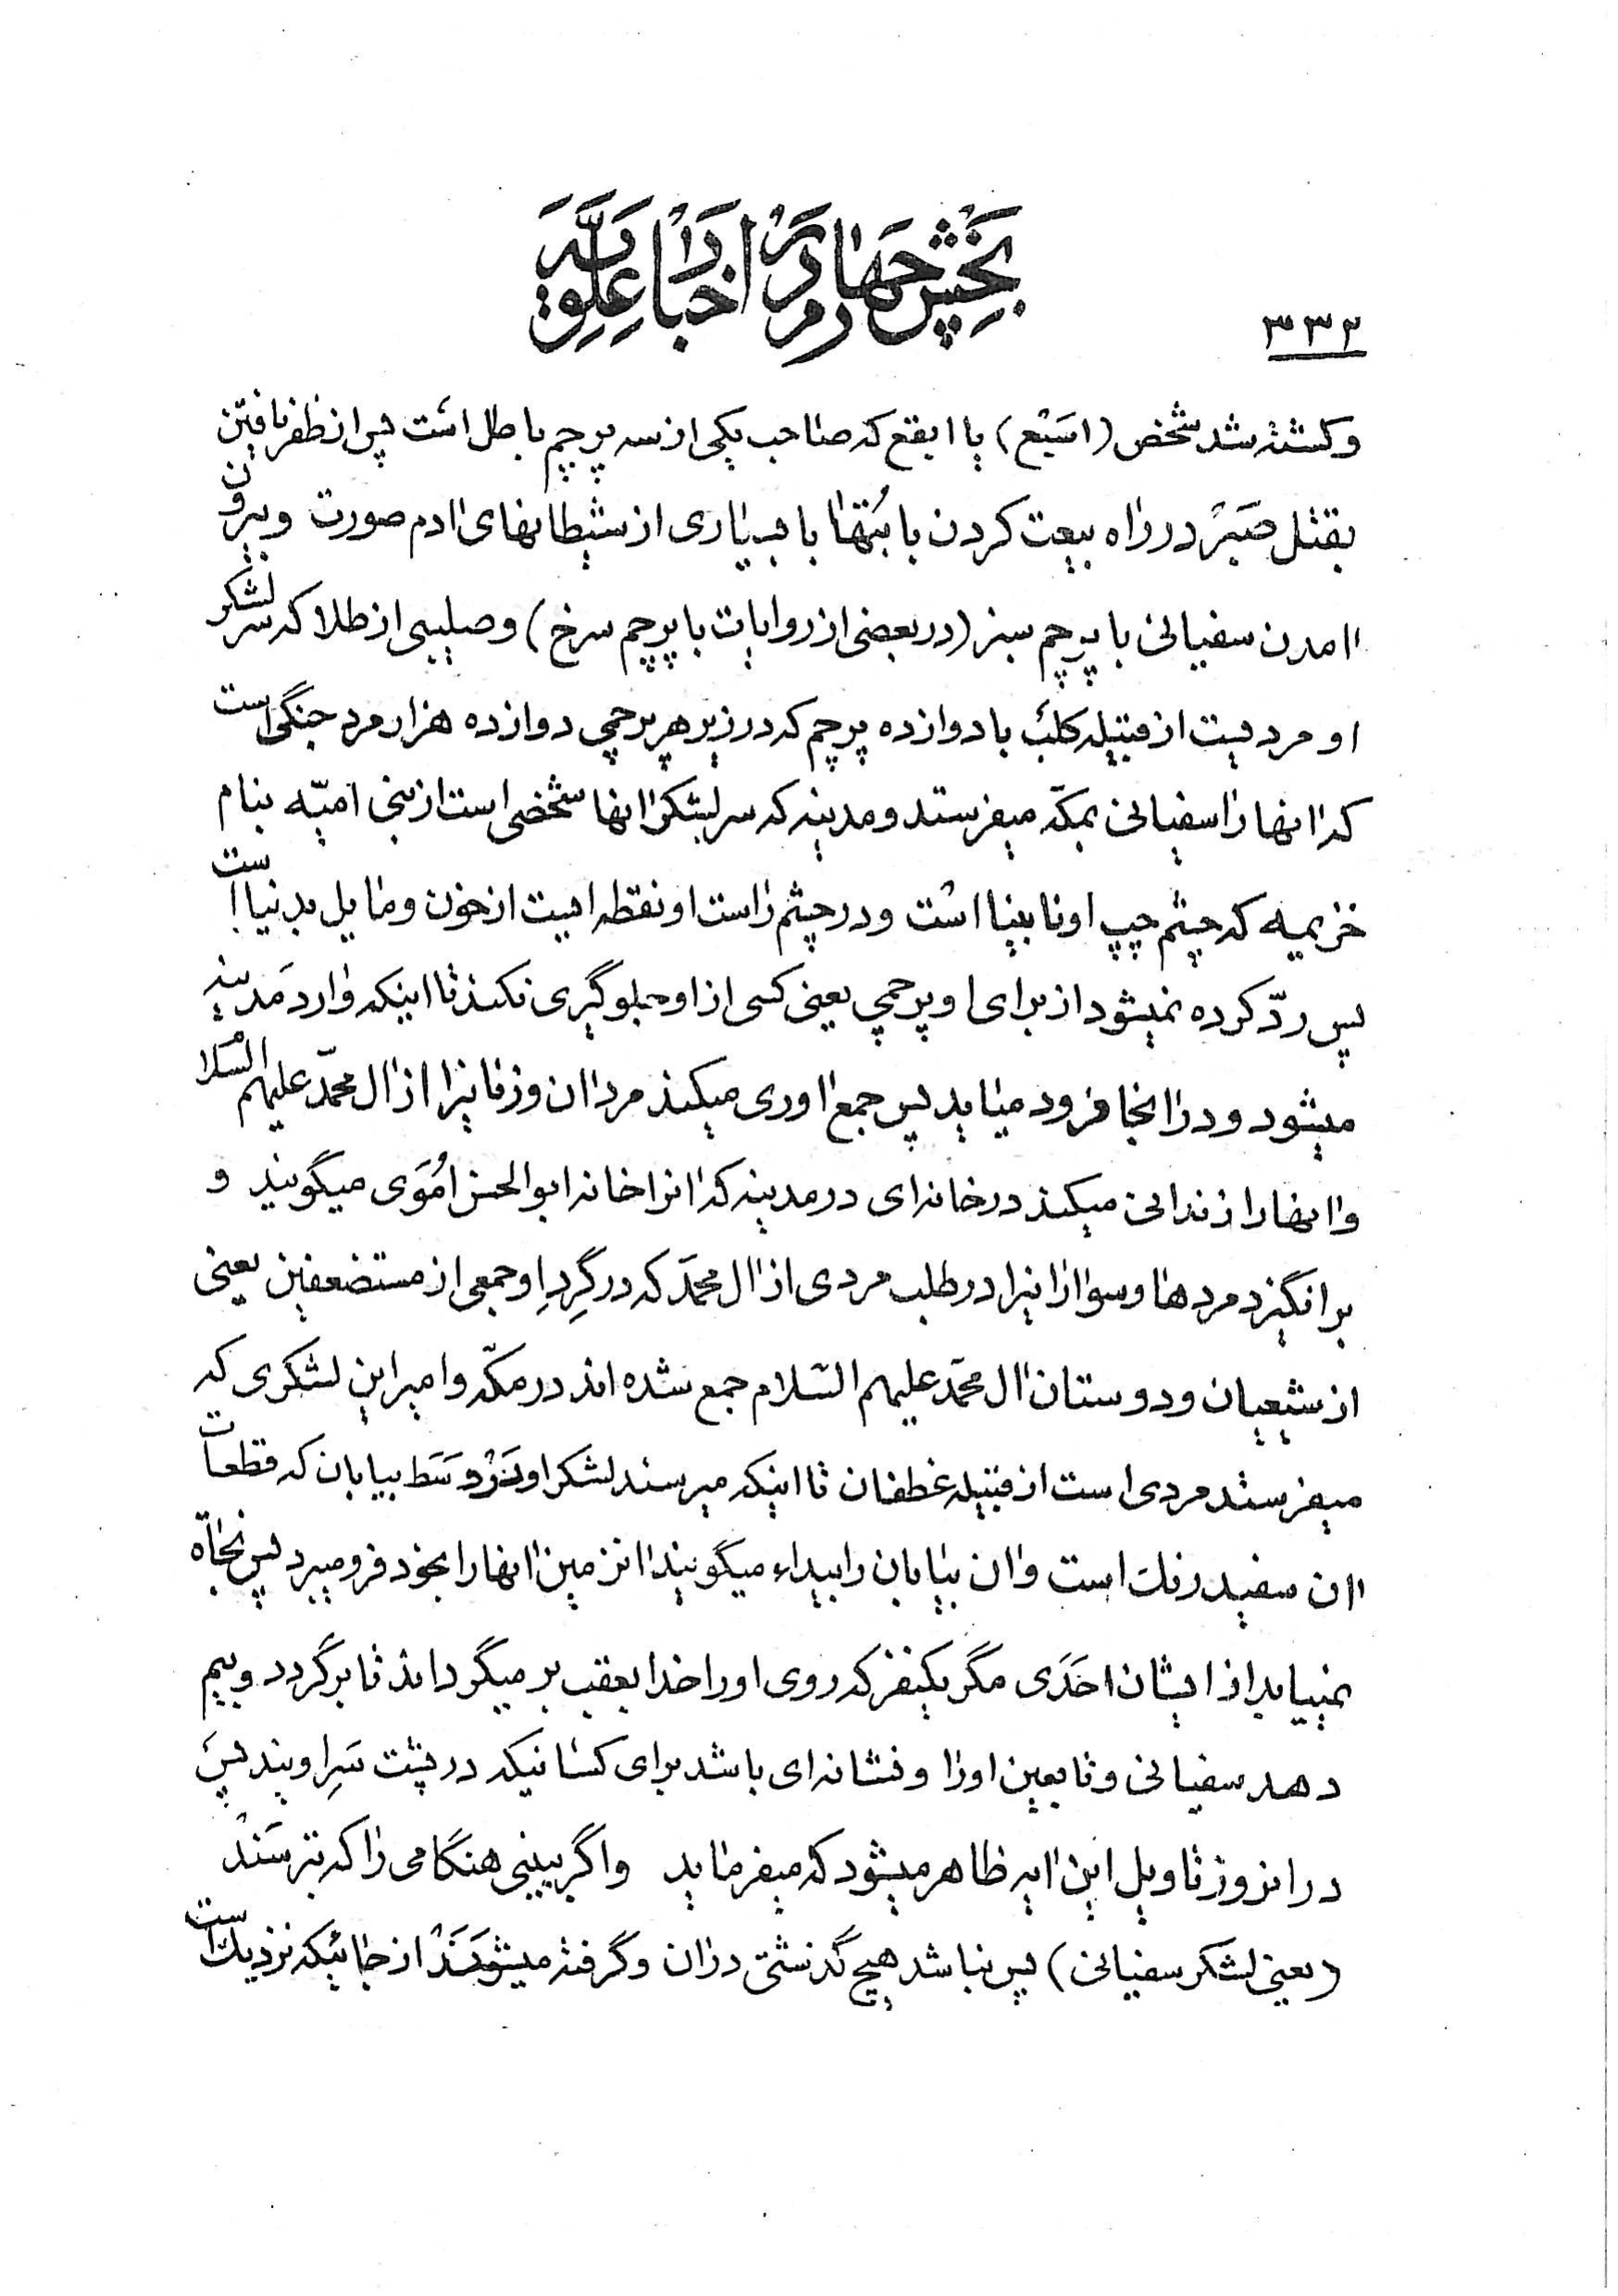 بخش چهارم در اخبار علویّه
۳۳۲
و کشته شد شخص (اسبع) یا ابقع که صاحب یکی از سه پرچم باطل است پس از ظفر یافتن
بقتل صَبر در راه بیعت کردن با بُتها با بسیاری از شیطانهای اادم صورت و بیرون
اامدن سفیانی با پرچم سبز (در بعضی از روایات با پرچم سرخ) و صلیبی از طلا که سر لشکر
او مردیست از قبیله کلب با دوازده پرچم که در زیر هر پرچمی دوازده هزار مرد جنگی است
که اانها را سفیانی بمکّه میفرستد و مدینه که سر لشکر اانها شخصی است از بنی امیّه بنام
خزیمه که چشم چپ او نابینا است و در چشم راست او نقطه ایست از خون و مایل بدنیا است
پس ردّ کرده نمیشود از برای او پرچمی یعنی کسی از او جلوگیری نکند تا اینکه وارد مَدینه
میشود و در اانجا فرود میاید پس جمع ااوری میکند مرداان و زنانیرا از اال محمّد علیهم السّلام
و اانها را زندانی میکند در خانه ای در مدینه که اانرا خانه ابوالحسن اُمَوی میگویند و
برانگیزد مردها و سوارانیرا در طلب مردی از اال محمّد که در گِردِ او جمعی از مستضعفین یعنی
از شیعیان و دوستان اال محمّد علیهم السّلام جمع شده اند در مکّه و امیر این لشکری که
میفرستد مردی است از قبیله غطفان تا اینکه میرسند لشکر او در وَسَط بیابان که قطعات
اان سفید رنك است و اان بیابان را بیداء میگویند اانزمین اانها را بخود فرو میبرد پس نجاة
نمییابد از ایشان احَدی مگر یکنفر که روی او را خدا بعقب بر میگرداند تا برگردد و بیم
دهد سفیانی و تابعین او را و نشانه ای باشد برای کسانیکه در پشت سَرِ اویند پَس
در اانروز تاویل این اایه ظاهر میشود که میفرماید و اگر ببینی هنگامی را که بترسَند
(یعنی لشکر سفیانی) پس نباشد هیچ گذشتی در اان و گرفته میشوَند از جائیکه نزدیك است